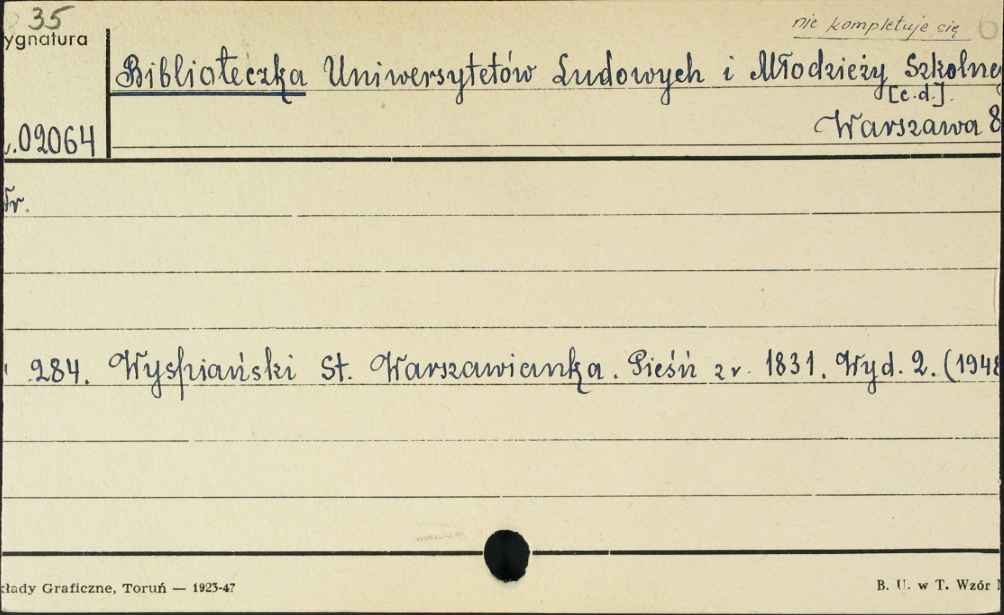 35
nie kompletuje się
ygnatura
Biblioteczka Uniwersytetów Ludowych i Młodzieży Szkolne
[c.d.].
.02064
Warszawa 8
Nr.
284. Wyspiański St. Warszawianka. Pieśń z r. 1831. Wyd. 2. (1948
kłady Graficzne, Toruń — 1923-47
B. U. w T. Wzór